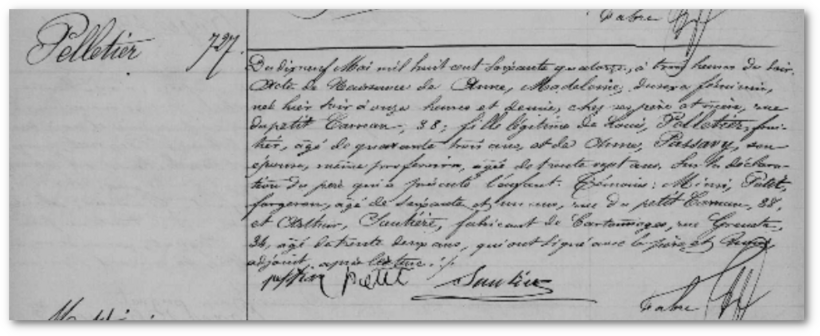 Fabre
Pelletier 727.
Du dix neuf Mai mil huit cent soixante quatorze, à trois heures du soir.
Acte de Naissance de Anne, Madeleine, du sexe féminin,
née hier soir à onze heures et demie, chez ses père et mère, rue
du petit Camas, 38; fille légitime de Louis, Pelletier,
âgé de quarante huit ans, et de Anne, Passavy, son
épouse, même profession, âgée de trente sept ans. Sur la déclara-
tion du père qui a présenté l'enfant. Témoins: Pietet,
forgeron, âgé de soixante et un ans, rue du petit Camas, 38,
et Arthur, Sautière, fabricant de Cartonnages, rue
34, âgé de trente deux ans, qui ont signé avec le père, et nous
adjoint, après lecture ./.
Pietet Sautière
Fabre